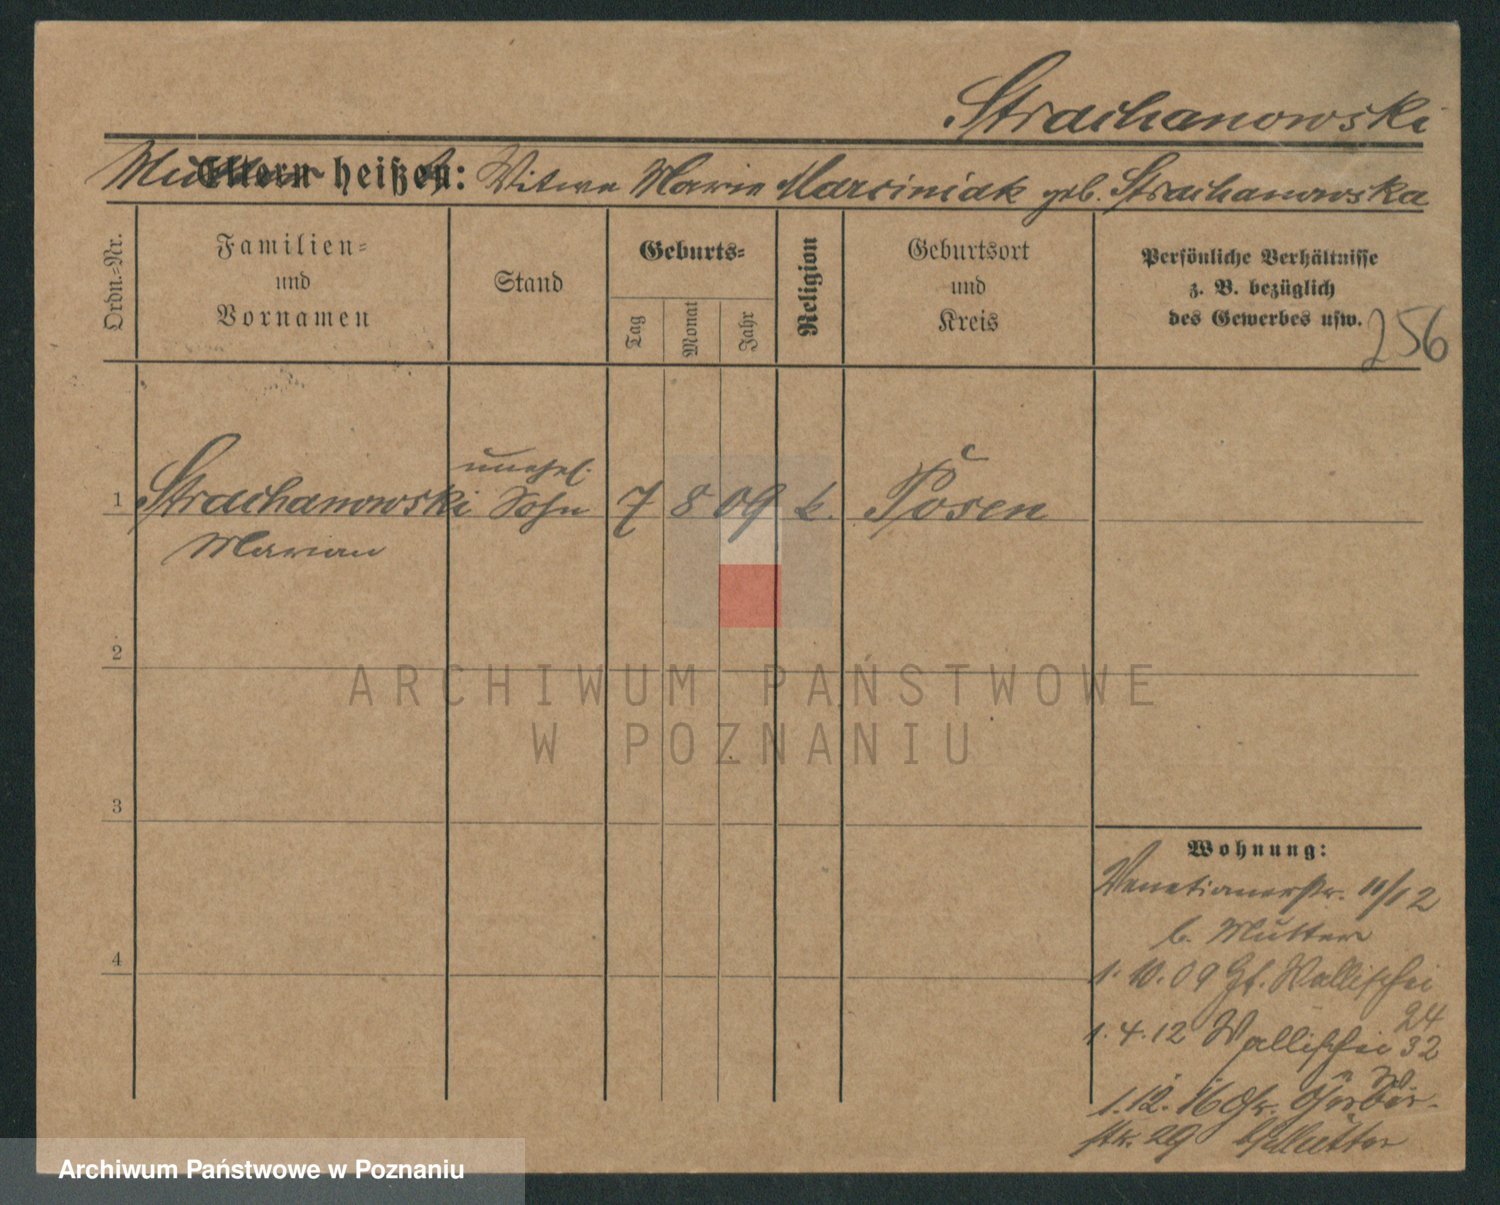 Strachanowski
Mutter heißt: Witwe Marie Marciniak geb. Strachanowska
Ordn.-Nr.
Familien- und Vornamen
Stand
Geburts-
Tag
Monat
Jahr
Religion
Geburtsort und Kreis
Persönliche Verhältnisse
z. B. bezüglich
des Gewerbes usw.
256
1 Strachanowski unehel. Sohn 7 8 09 k. Posen
Marian
2
3
4
Wohnung:
Venetianerstr. 11/12
b. Mutter
1. 10. 09 Gr. Wallischei
24
1. 4. 12 Wallischei 32
1. 12. 16 Gr. Gerber-
str. 29 b/Mutter
ARCHIWUM PAŃSTWOWE
W POZNANIU
Archiwum Państwowe w Poznaniu